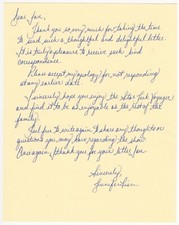 Dear Joe,
Thank you so very much for taking the time
to send such a thoughtful and delightful letter.
It is truly a pleasure to receive such kind
correspondence.
Please accept my apology for not responding
at any earlier date.
I sincerely hope you enjoy the Star Trek Voyager
and find it to be as enjoyable as the rest of the
family.
Feel free to write again to share any thoughts or
questions you may have regarding the show.
Once again, thank you for your letter
Sincerely,
Jennifer Lien